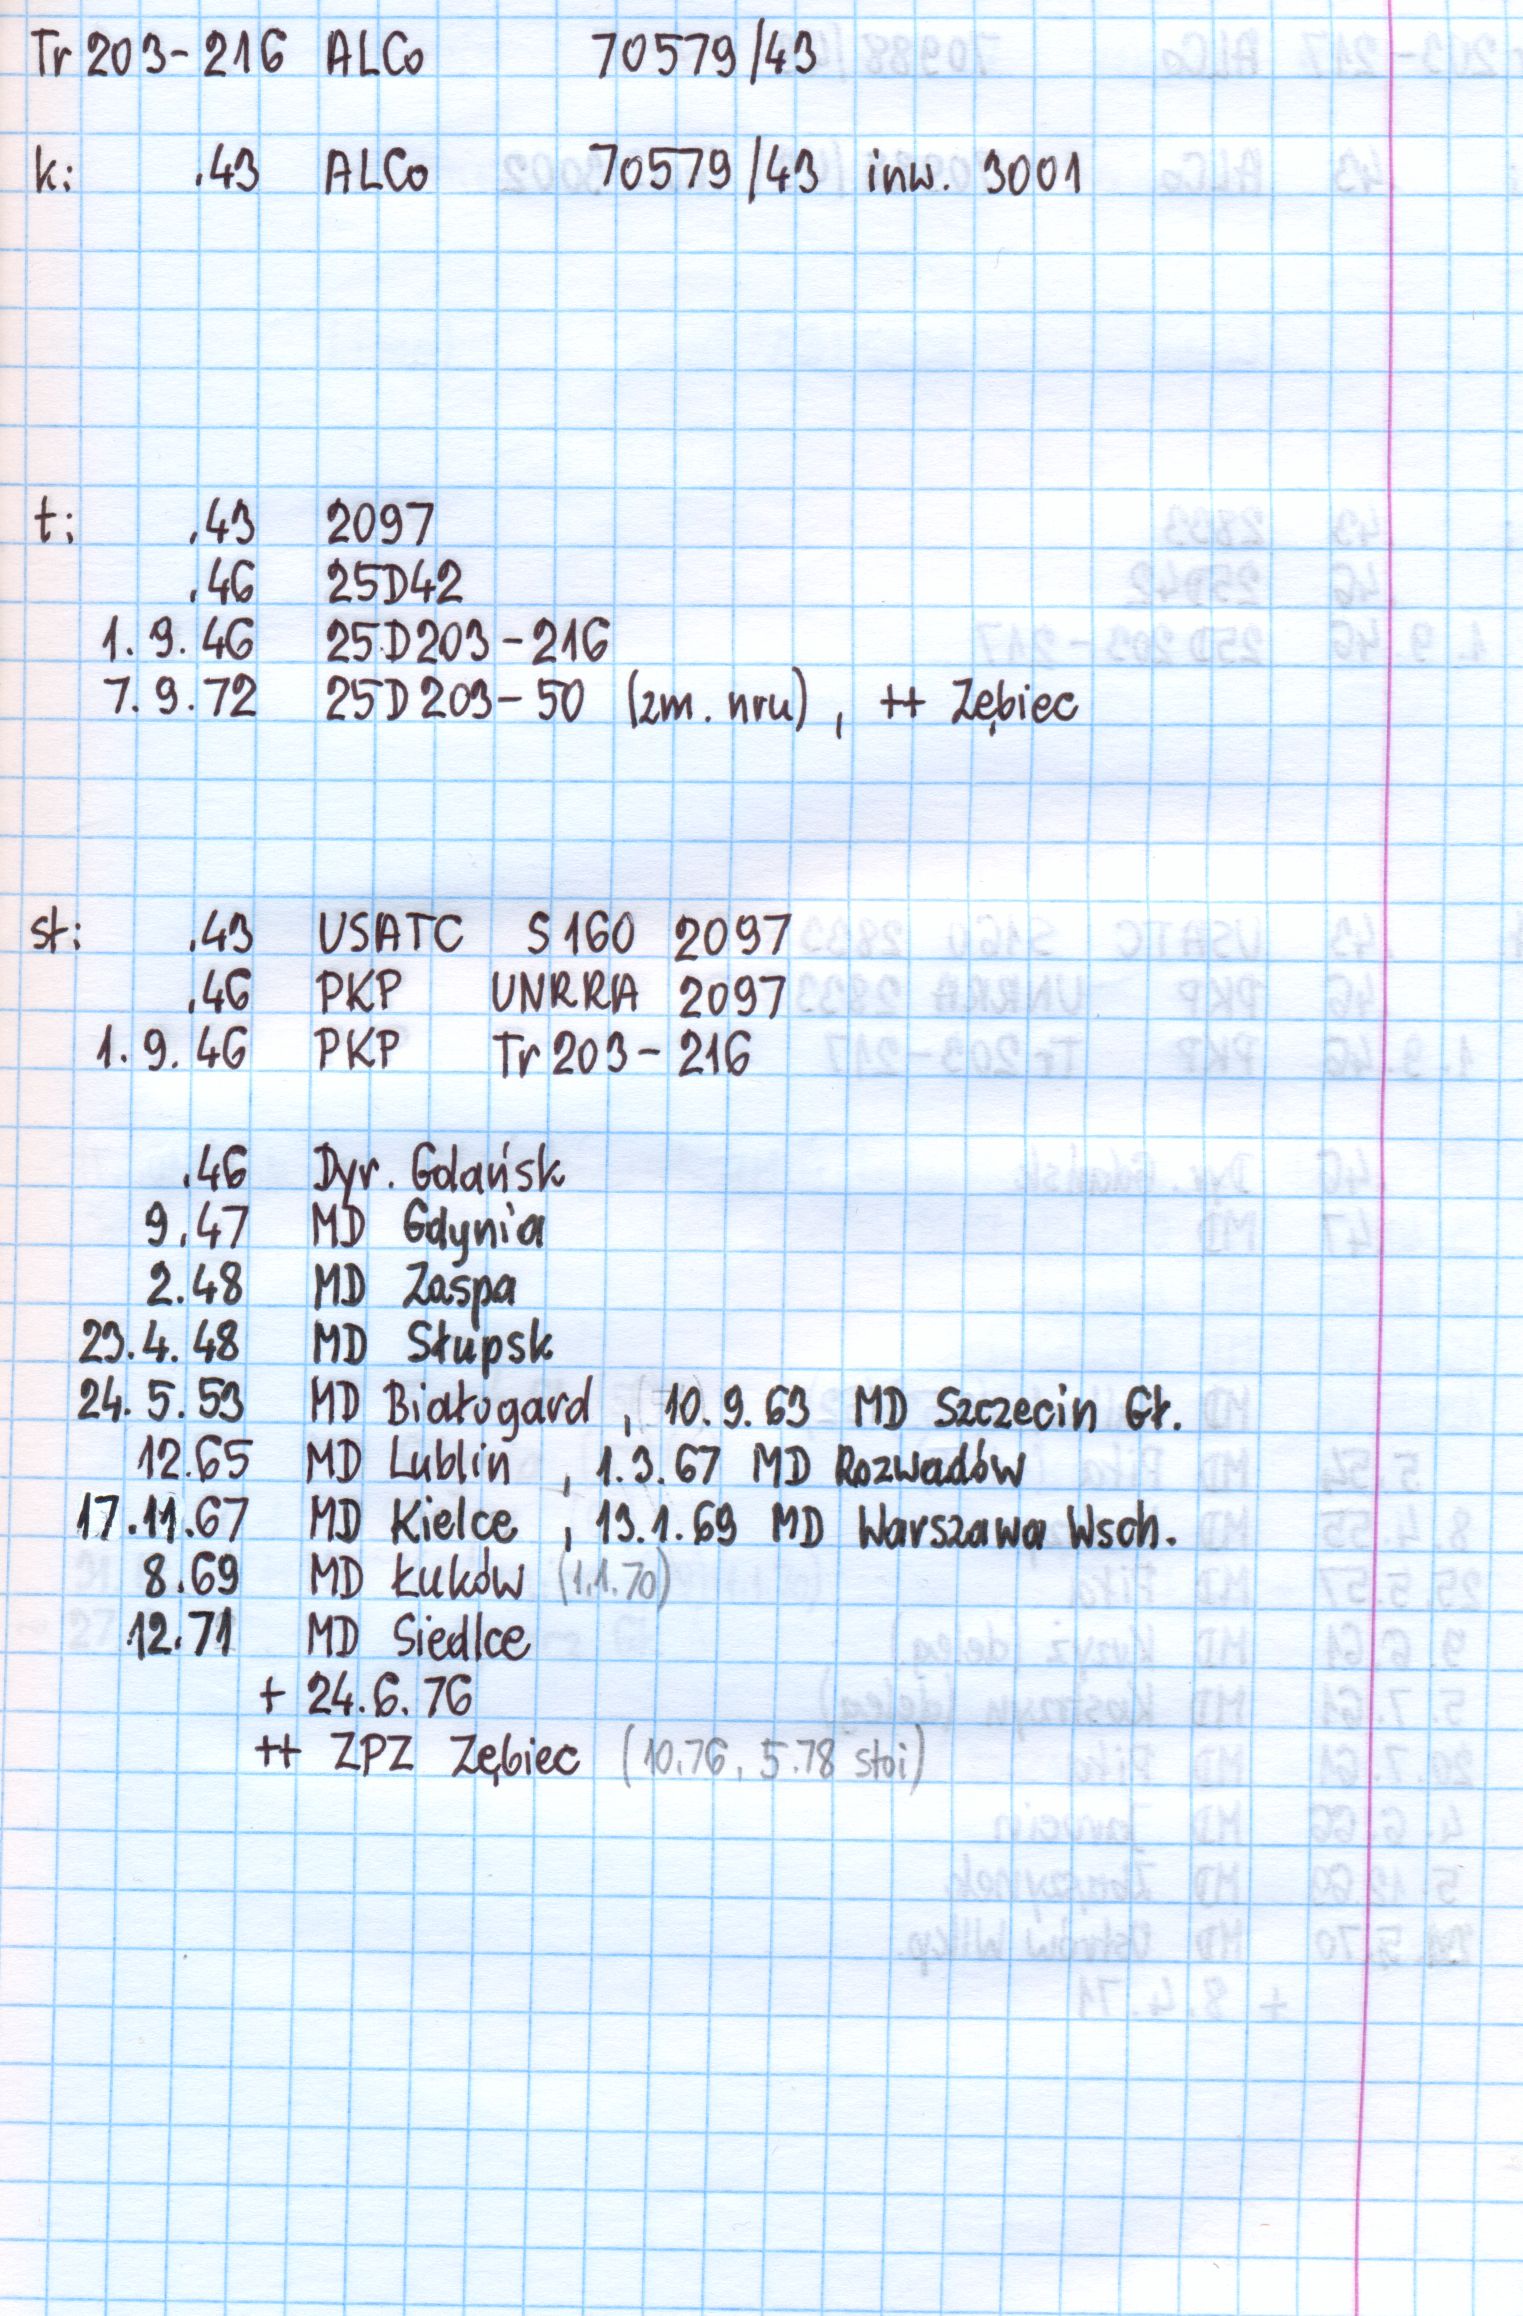 Tr 203-216 ALCo 70579/43
k: .43 ALCo 70579/43 inw. 3001
t: .43 2097
.46 25D42
1.9.46 25D203-216
7.9.72 25D203-50 (zm. nru), ++ Zębiec
st: .43 USATC S160 2097
.46 PKP UNRRA 2097
1.9.46 PKP Tr 203-216
.46 Dyr. Gdańsk
9.47 MD Gdynia
2.48 MD Zaspa
23.4.48 MD Słupsk
24.5.53 MD Białogard, 10.9.63 MD Szczecin Gł.
12.65 MD Lublin, 1.3.67 MD Rozwadów
17.11.67 MD Kielce, 13.1.69 MD Warszawa Wsch.
8.69 MD Łuków (1.1.70)
12.71 MD Siedlce
+ 24.6.76
++ ZPZ Zębiec (10.76, 5.78 stoi)